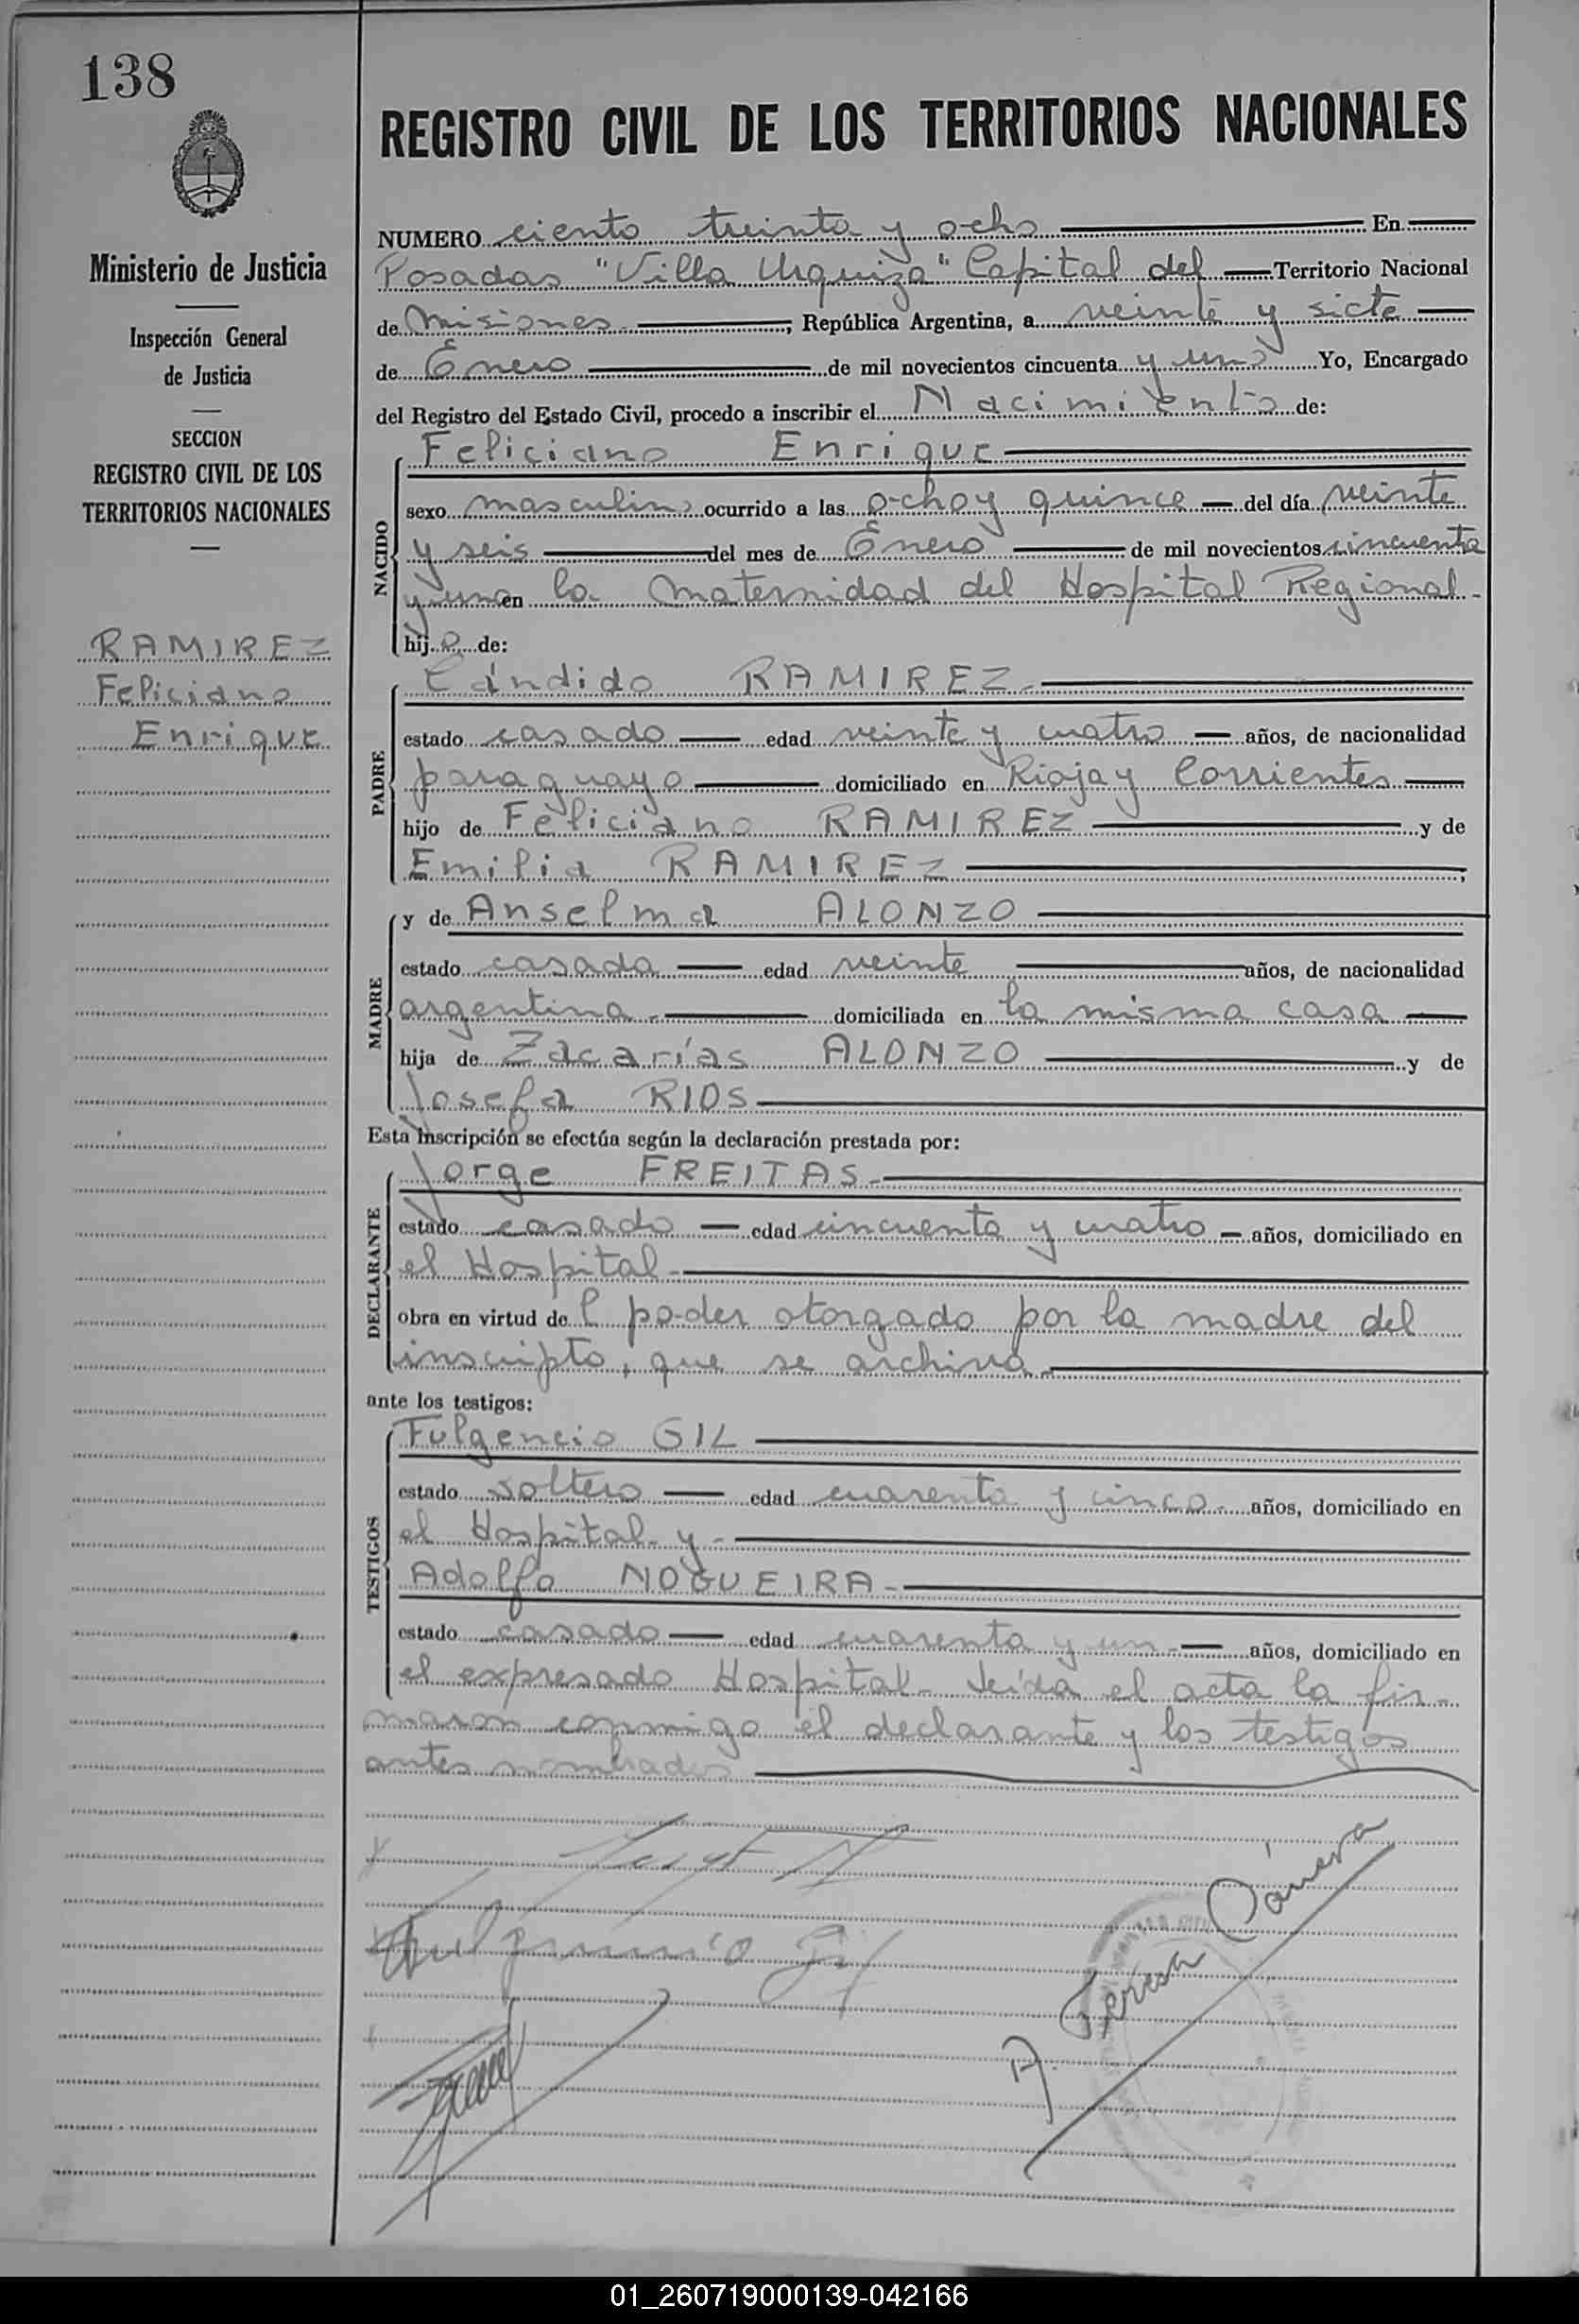 138
REGISTRO CIVIL DE LOS TERRITORIOS NACIONALES
Ministerio de Justicia
Inspección General
de Justicia
SECCION
REGISTRO CIVIL DE LOS
TERRITORIOS NACIONALES
RAMIREZ
Feliciano
Enrique
NUMERO ciento treinta y ocho En
Posadas "Villa Urquiza" Capital del Territorio Nacional
de Misiones, República Argentina, a veinte y siete
de Enero de mil novecientos cincuenta y uno Yo, Encargado
del Registro del Estado Civil, procedo a inscribir el Nacimiento de:
NACIDO
Feliciano Enrique
sexo masculino ocurrido a las ocho y quince del día veinte
y seis del mes de Enero de mil novecientos cincuenta
y uno en la Maternidad del Hospital Regional.
hijo de:
PADRE
Cándido RAMIREZ.
estado casado edad veinte y cuatro años, de nacionalidad
paraguayo domiciliado en Rioja y Corrientes
hijo de Feliciano RAMIREZ y de
Emilia RAMIREZ;
MADRE
y de Anselma ALONZO
estado casada edad veinte años, de nacionalidad
argentina domiciliada en la misma casa
hija de Zacarías ALONZO y de
Josefa RIOS
Esta inscripción se efectúa según la declaración prestada por:
DECLARANTE
Jorge FREITAS.
estado casado edad cincuenta y cuatro años, domiciliado en
el Hospital
obra en virtud del poder otorgado por la madre del
inscripto, que se archiva.
ante los testigos:
TESTIGOS
Fulgencio GIL
estado soltero edad cuarenta y cinco años, domiciliado en
el Hospital y
Adolfo NOGUEIRA
estado casado edad cuarenta y un años, domiciliado en
el expresado Hospital. Leída el acta la fir-
maron conmigo el declarante y los testigos
antes nombrados
Fulgencio Gil
A. Teresa Cámera
01_260719000139-042166